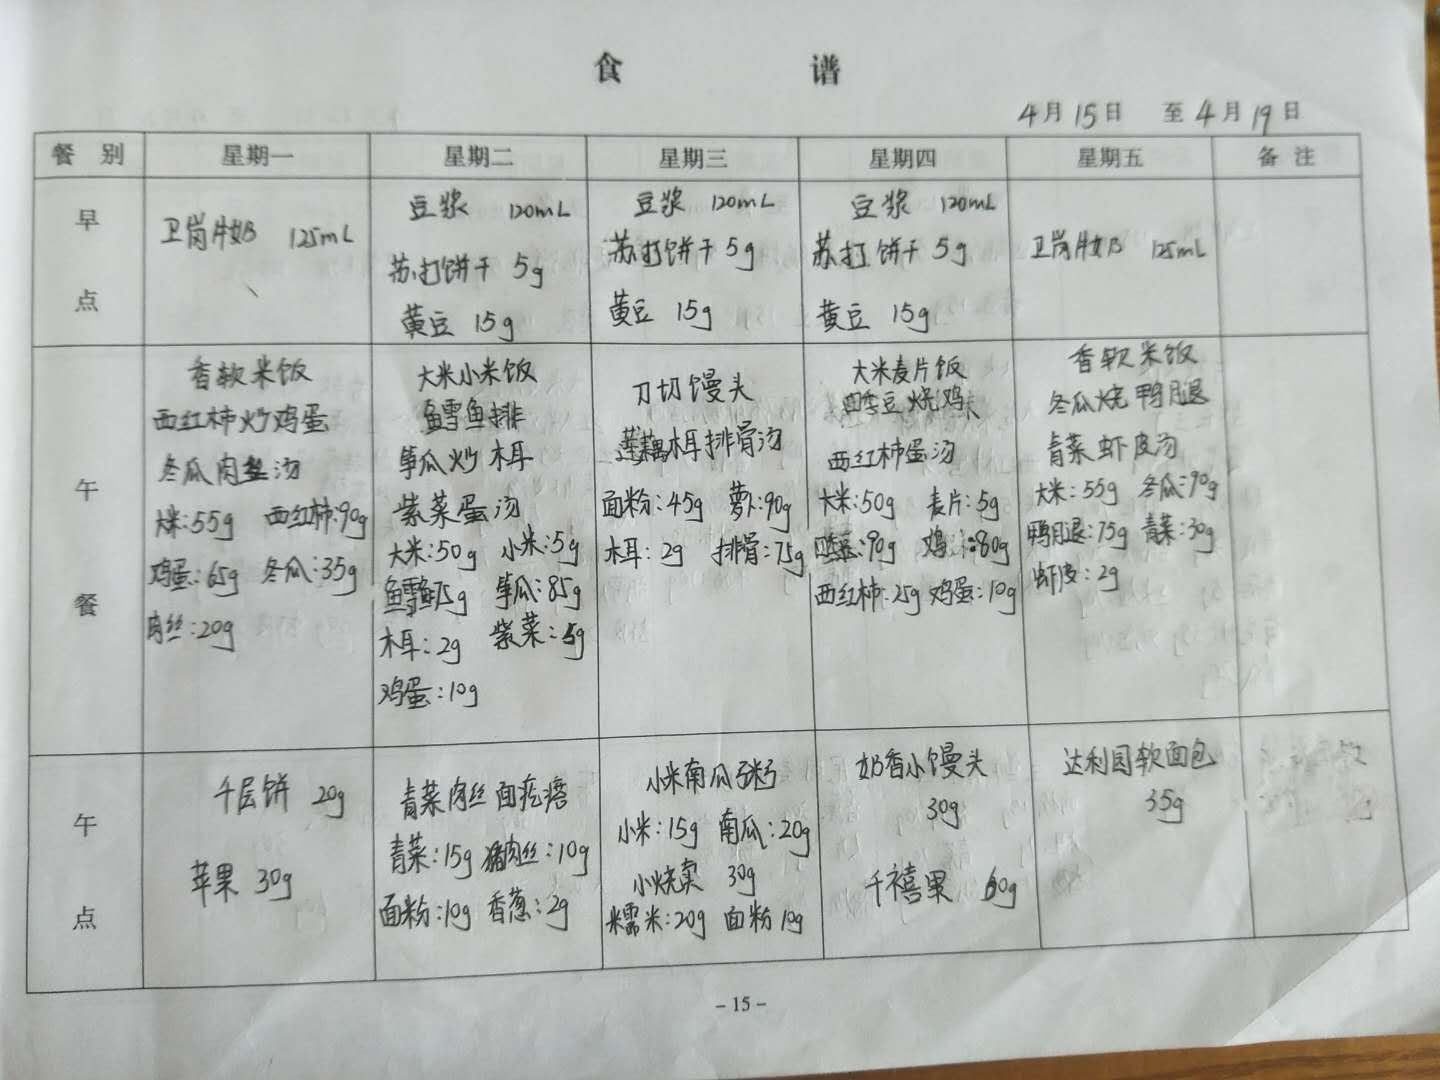 食 谱
4月15日 至4月19日
餐 别 星期一 星期二 星期三 星期四 星期五 备 注
早点
卫岗牛奶 125mL
豆浆 120mL
苏打饼干 5g
黄豆 15g
豆浆 120mL
苏打饼干 5g
黄豆 15g
豆浆 120mL
苏打饼干 5g
黄豆 15g
卫岗牛奶 125mL
午餐
香软米饭
西红柿炒鸡蛋
冬瓜肉丝汤
大米:55g 西红柿:90g
鸡蛋:65g 冬瓜:35g
肉丝:20g
大米小米饭
鳕鱼排
笋瓜炒木耳
紫菜蛋汤
大米:50g 小米:5g
鳕鱼75g 笋瓜:85g
木耳:2g 紫菜:5g
鸡蛋:10g
刀切馒头
莲藕木耳排骨汤
面粉:45g 萝卜:90g
木耳:2g 排骨:75g
大米麦片饭
四季豆烧鸡
西红柿蛋汤
大米:50g 麦片:5g
四季豆:90g 鸡:80g
西红柿:25g 鸡蛋:10g
香软米饭
冬瓜烧鸭腿
青菜虾皮汤
大米:55g 冬瓜:90g
鸭腿:75g 青菜:30g
虾皮:2g
午点
千层饼 20g
苹果 30g
青菜肉丝面疙瘩
青菜:15g 猪肉丝:10g
面粉:10g 香葱:2g
小米南瓜粥
小米:15g 南瓜:20g
小烧卖 30g
糯米:20g 面粉10g
奶香小馒头
30g
千禧果 60g
达利园软面包
35g
-15-